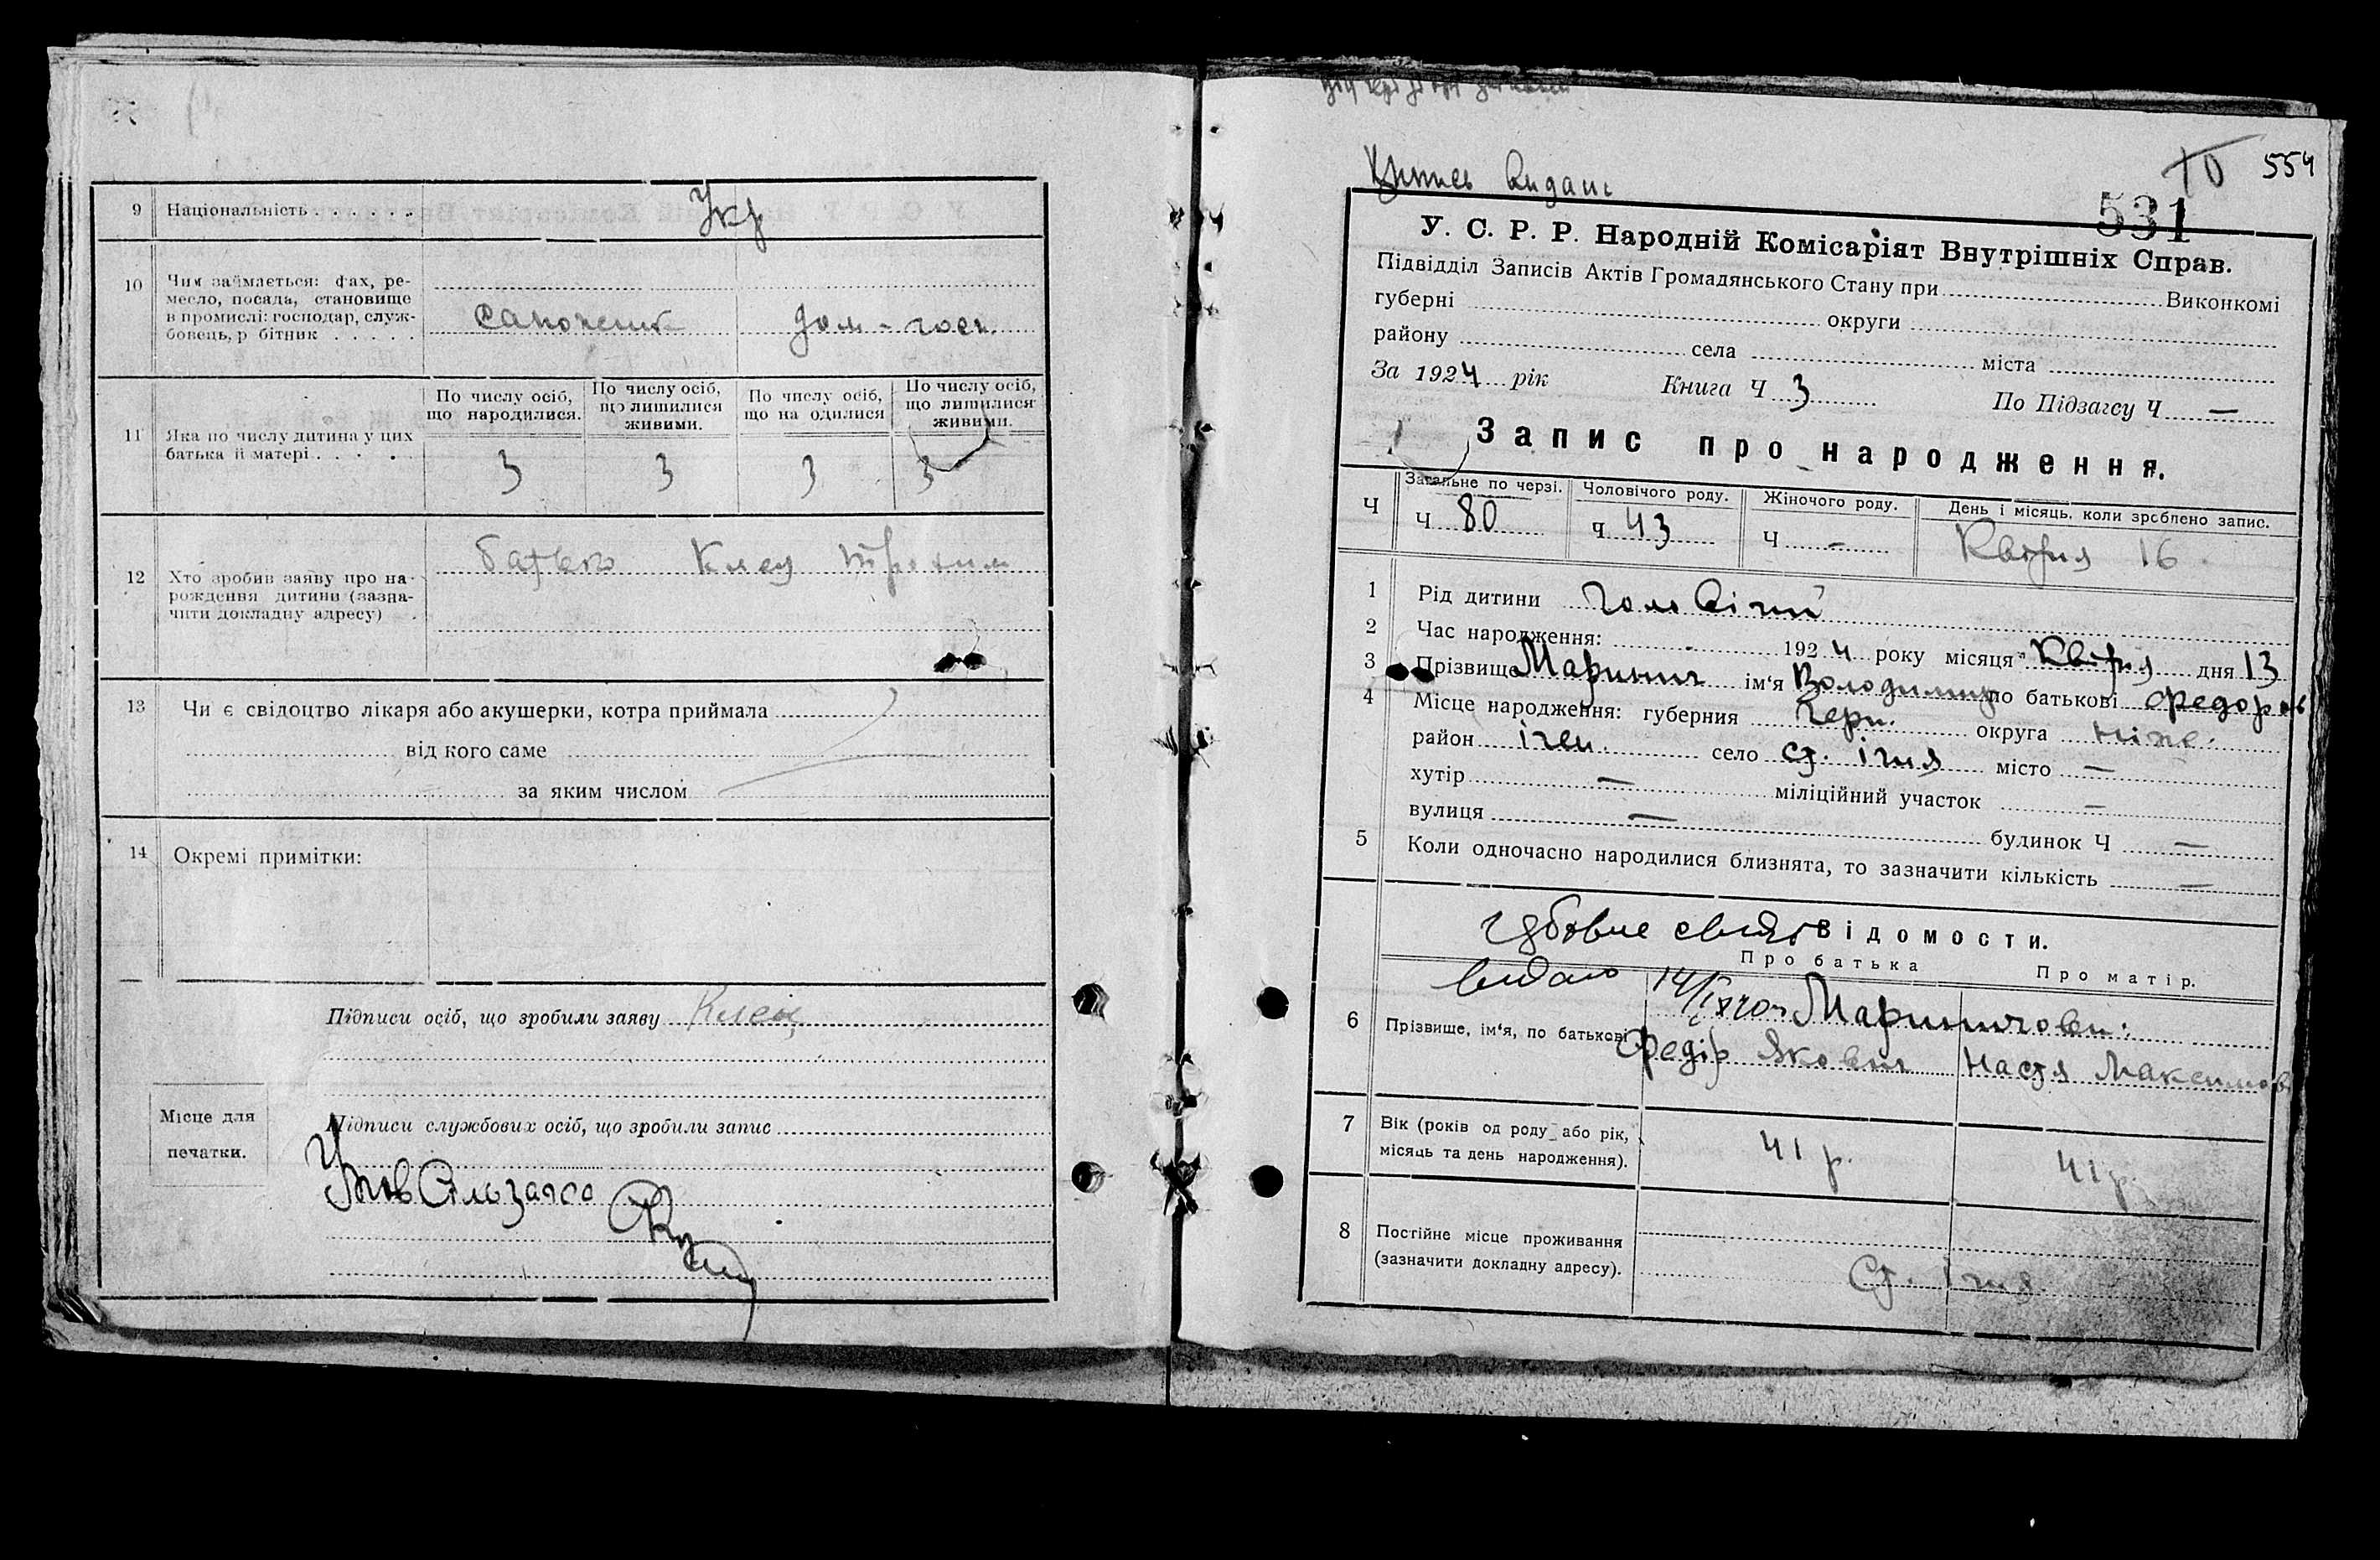 9 Національність . . . . . . Укр
10 Чим займається: фах, ре-
месло, посада, становище
в промислі: господар, служ-
бовець, р бітник . . . . .
дом - госп.
11 Яка по числу дитина у цих
батька й матері . . . .
По числу осіб,
що народилися.
По числу осіб,
що лишилися
живими.
По числу осіб,
що на одилися
По числу осіб,
що лишилися
живими.
3 3 3 3
12 Хто зробив заяву про на-
рождення дитини (зазна-
чити докладну адресу)
батько
13 Чи є свідоцтво лікаря або акушерки, котра приймала
від кого саме
за яким числом
14 Окремі примітки:
Підписи осіб, що зробили заяву
Місце для
печатки.
Підписи службових осіб, що зробили запис
видані
10 554
531
У. С. Р. Р. Народній Комісаріят Внутрішніх Справ.
Підвідділ Записів Актів Громадянського Стану при Виконкомі
губерні округи
району села міста
За 1924 рік Книга Ч 3 По Підзагсу Ч —
Запис про народження.
Ч Загальне по черзі. Чоловічого роду. Жіночого роду. День і місяць, коли зроблено запис.
Ч 80 Ч 43 Ч — Квітня 16
1 Рід дитини Чоловічий
2 Час народження: 1924 року місяця Квітня дня 13
3 Прізвище Маринич ім‘я Володимир по батькові Федоров
4 Місце народження: губерния Черн. округа Ніже.
район ічен. село ст. ічня місто —
хутір — міліційний участок —
вулиця — будинок Ч —
5 Коли одночасно народилися близнята, то зазначити кількість —
Відомости.
Про батька Про матір.
видано
6 Прізвище, ім‘я, по батькові
Мариничови:
Федір Якович Настя Максимов
7 Вік (років од роду або рік,
місяць та день народження).
41 р. 41 р.
8 Постійне місце проживання
(зазначити докладну адресу).
Ст. ічня.